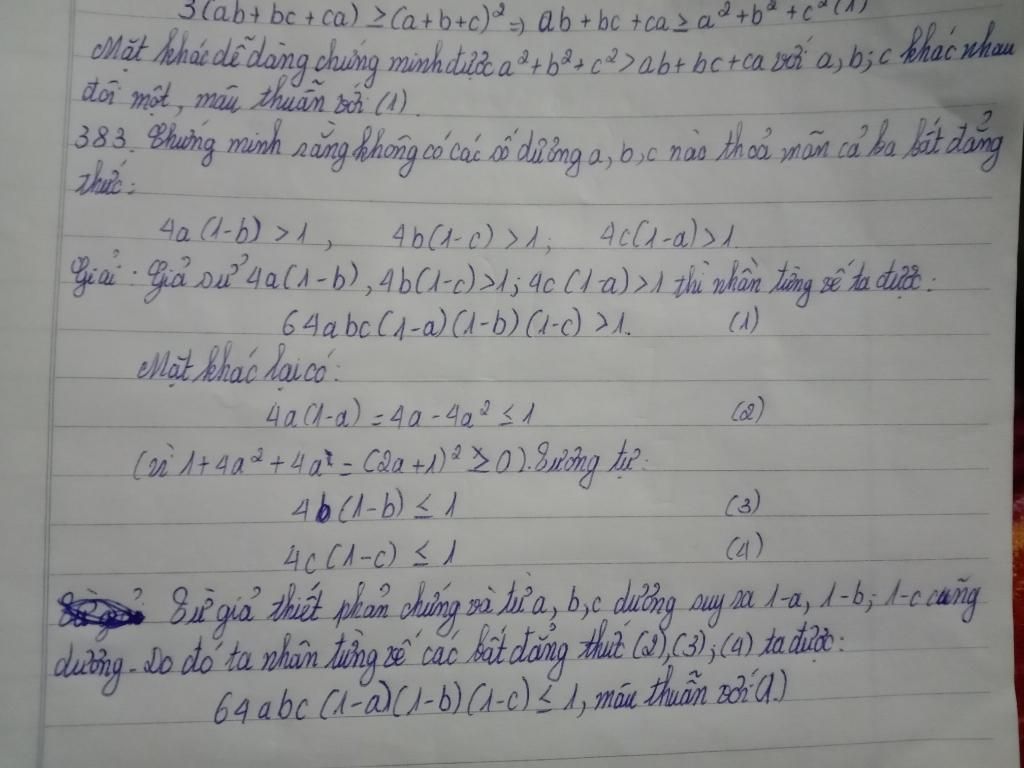 3(ab+bc+ca) ≥ (a+b+c)² ⇒ ab+bc+ca ≥ a²+b²+c² (1)
Mặt khác dễ dàng chứng minh được a²+b²+c² > ab+bc+ca với a, b; c khác nhau
đôi một, mâu thuẫn với (1).
383. Chứng minh rằng không có các số dương a, b, c nào thoả mãn cả ba bất đẳng
thức:
4a(1-b) > 1, 4b(1-c) > 1; 4c(1-a) > 1.
Giải: Giả sử 4a(1-b), 4b(1-c) > 1; 4c(1-a) > 1 thì nhân từng vế ta được:
64abc(1-a)(1-b)(1-c) > 1. (1)
Mặt khác lại có:
4a(1-a) = 4a - 4a² ≤ 1 (2)
(vì 1+4a²+4a = (2a+1)² ≥ 0). Tương tự:
4b(1-b) ≤ 1 (3)
4c(1-c) ≤ 1 (4)
Từ giả thiết phản chứng và từ a, b, c dương suy ra 1-a, 1-b; 1-c cũng
dương. Do đó ta nhân từng vế các bất đẳng thức (2), (3); (4) ta được:
64abc(1-a)(1-b)(1-c) ≤ 1, mâu thuẫn với (1.)